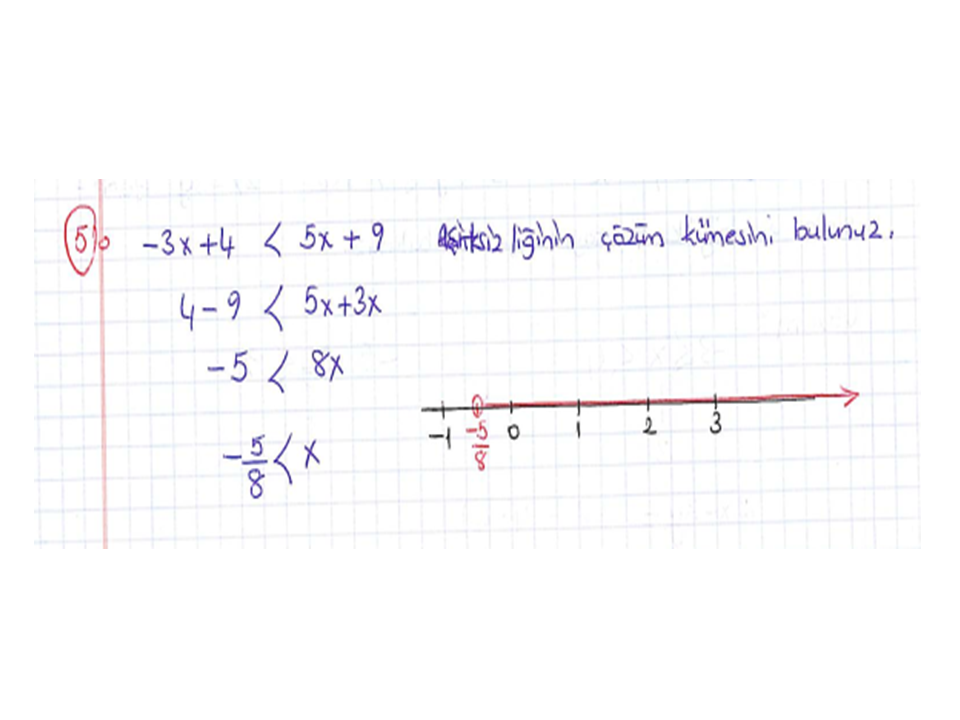 5. -3x+4 < 5x+9 eşitsizliğinin çözüm kümesini bulunuz.
4-9 < 5x+3x
-5 < 8x
-5/8 < x
-1 -5/8 0 1 2 3